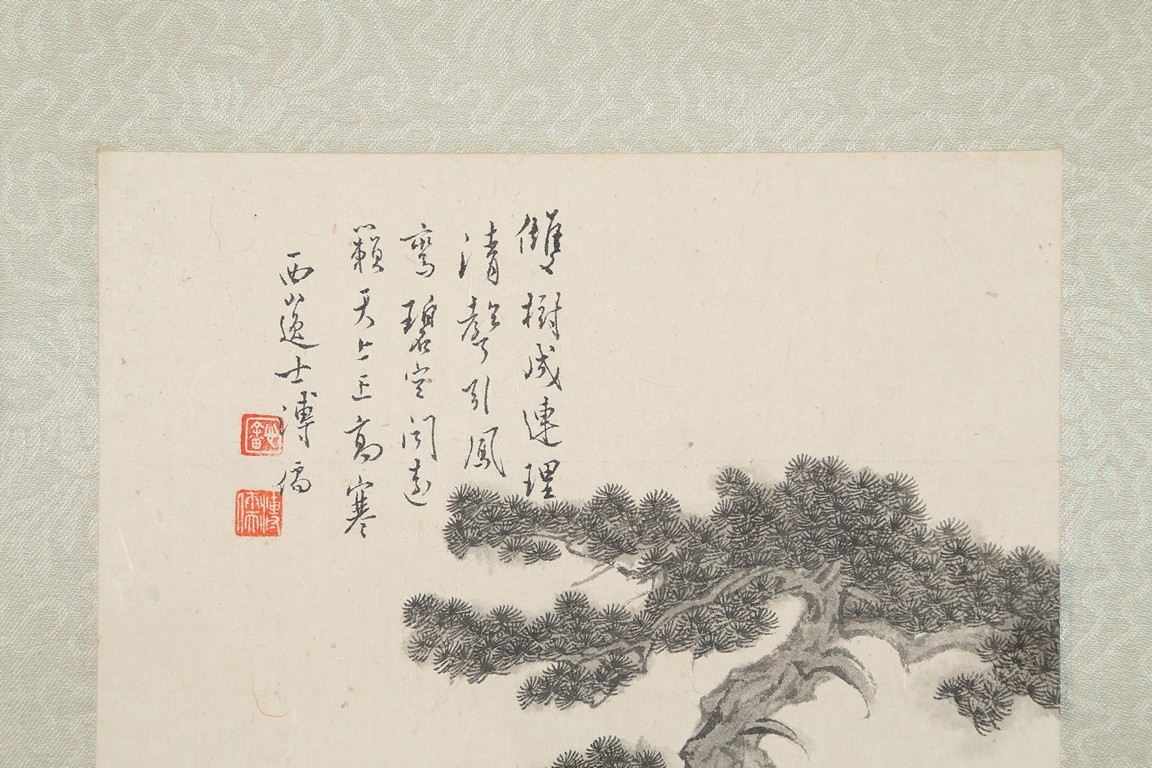 雙樹成連理
清聲引鳳
鸞碧空聞遠
籟天上正高寒
西山逸士溥儒
溥儒